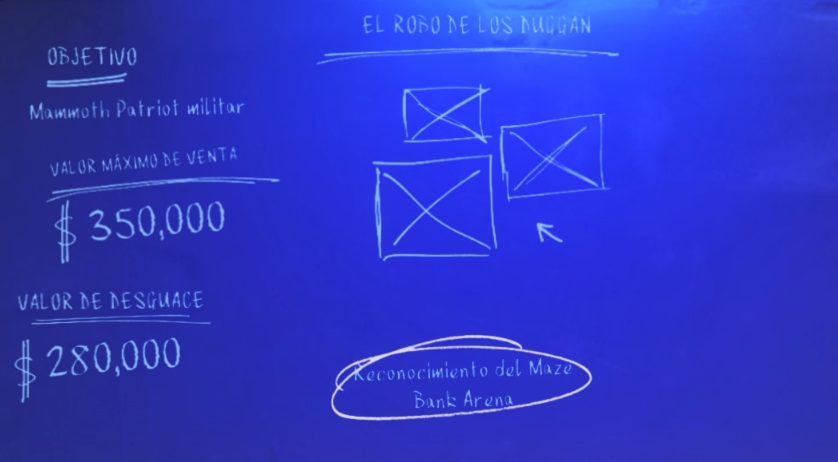 EL ROBO DE LOS DUGGAN
OBJETIVO
Mammoth Patriot militar
VALOR MÁXIMO DE VENTA
$ 350,000
VALOR DE DESGUACE
$ 280,000
Reconocimiento del Maze
Bank Arena